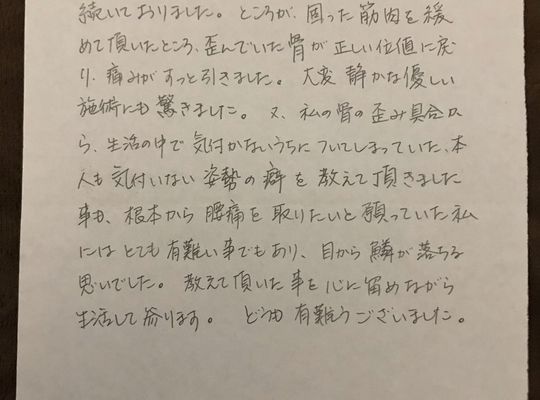 続いておりました。ところが、固った筋肉を緩
めて頂いたところ、歪んでいた骨が正しい位値に戻
り、痛みがすっと引きました。大変静かな優しい
施術にも驚きました。又、私の骨の歪み具合か
ら、生活の中で気付かないうちについてしまっていた、本
人も気付いない姿勢の癖を教えて頂きました
事も、根本から腰痛を取りたいと願っていた私
にはとても有難い事でもあり、目から鱗が落ちる
思いでした。教えて頂いた事を心に留めながら
生活して参ります。どうも有難うございました。